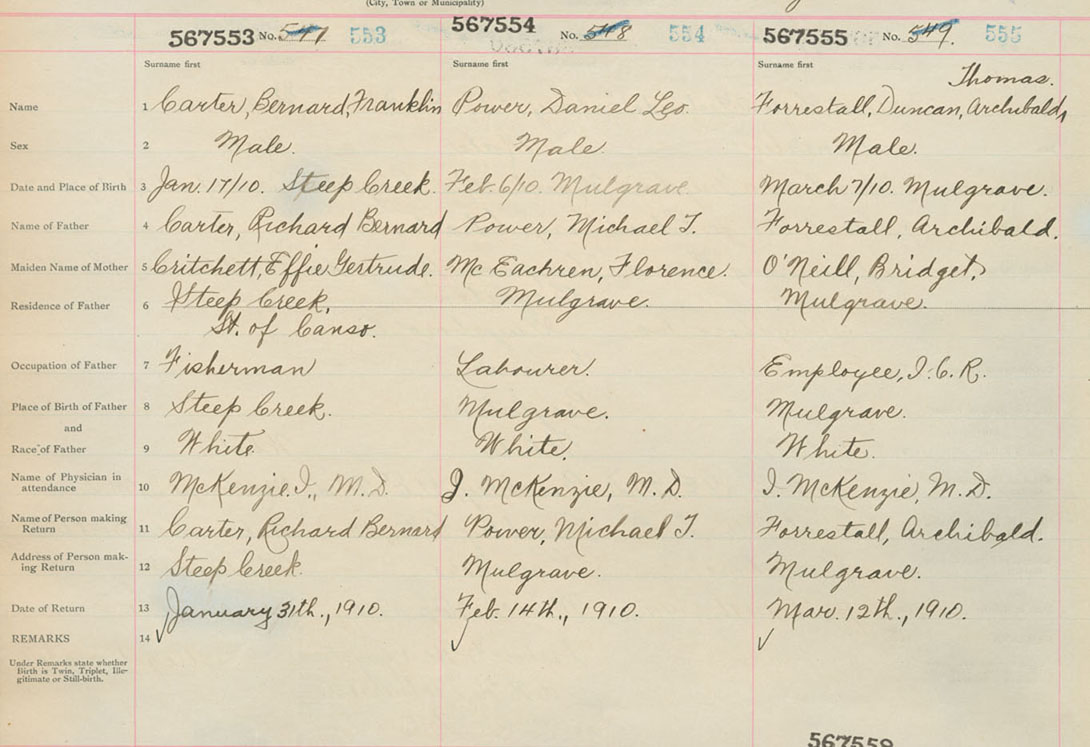 (City, Town or Municipality)
567553 No. 547 553 567554 No. 548 554 567555 No. 549. 555
Surname first Surname first Surname first
Thomas.
Name 1 Carter, Bernard, Franklin Power, Daniel Leo. Forrestall, Duncan, Archibald,
Sex 2 Male. Male. Male.
Date and Place of Birth 3 Jan. 17/10. Steep Creek. Feb. 6/10. Mulgrave. March 7/10. Mulgrave.
Name of Father 4 Carter, Richard Bernard Power, Michael T. Forrestall, Archibald.
Maiden Name of Mother 5 Critchett, Effie Gertrude. McEachren, Florence. O'Neill, Bridget,
Residence of Father 6 Steep Creek, Mulgrave. Mulgrave.
St. of Canso.
Occupation of Father 7 Fisherman Labourer. Employee, I.C.R.
Place of Birth of Father 8 Steep Creek. Mulgrave. Mulgrave.
and
Race of Father 9 White. White. White.
Name of Physician in
attendance 10 McKenzie. J., M.D. J. McKenzie, M.D. J. McKenzie, M.D.
Name of Person making
Return 11 Carter, Richard Bernard Power, Michael T. Forrestall, Archibald.
Address of Person mak-
ing Return 12 Steep Creek. Mulgrave. Mulgrave.
Date of Return 13 January 31th., 1910. Feb. 14th., 1910. Mar. 12th., 1910.
REMARKS 14
Under Remarks state whether
Birth is Twin, Triplet, Ille-
gitimate or Still-birth.
567559